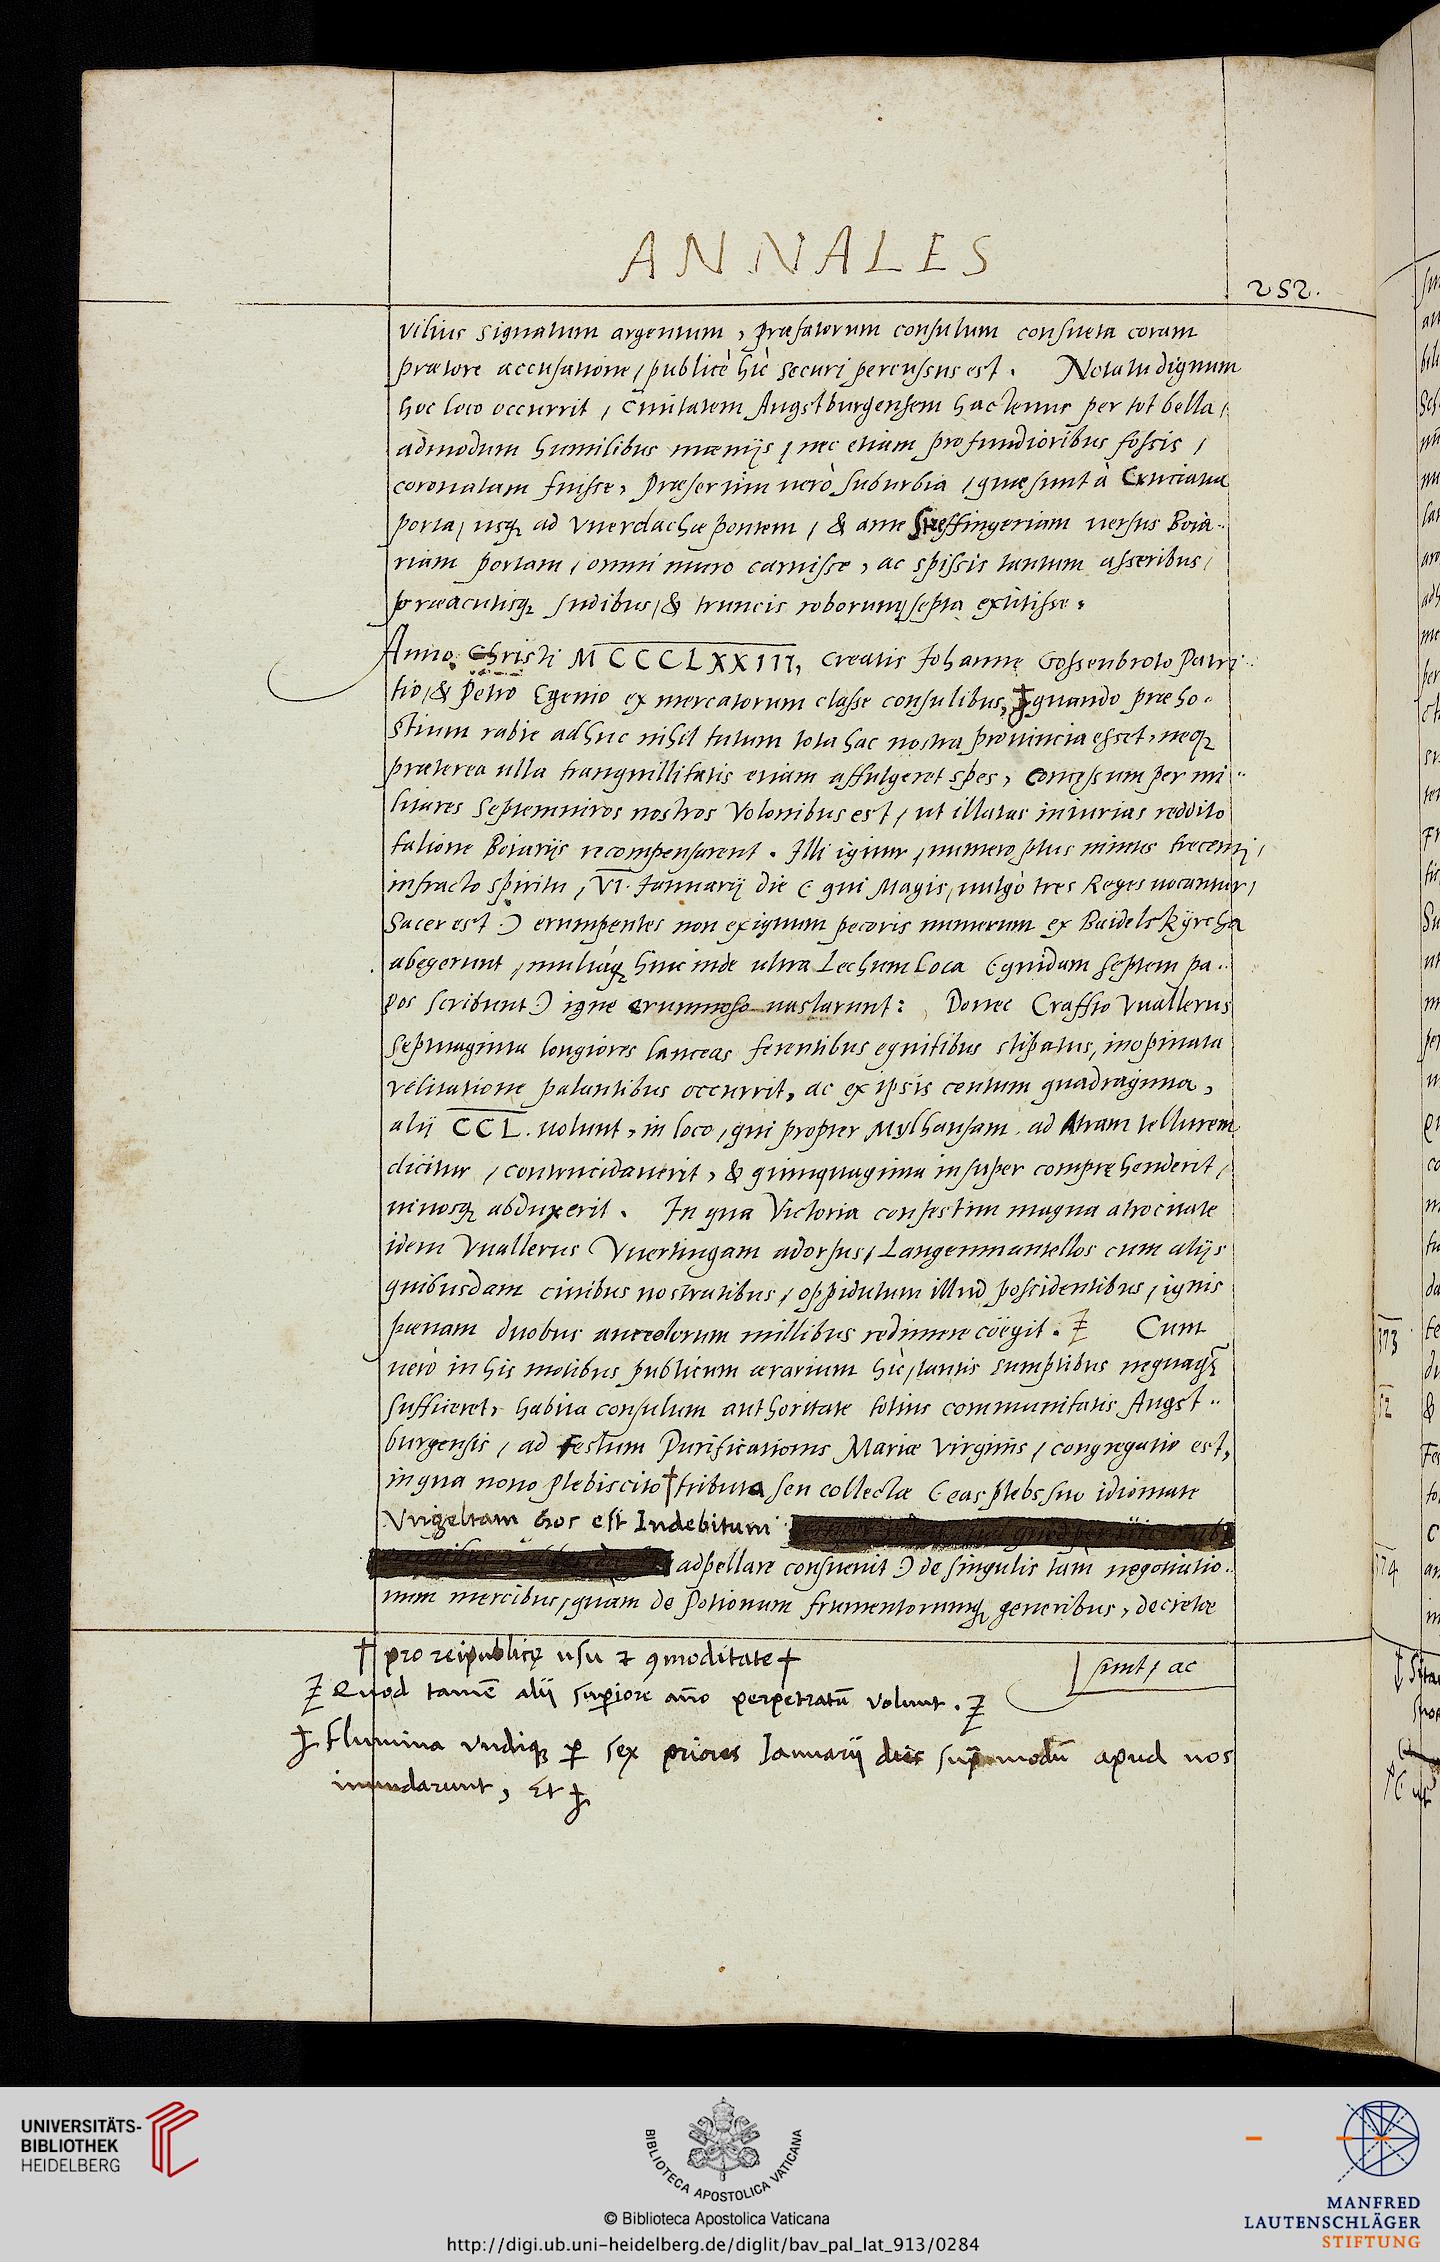 ANNALES
252.
vilius signatum argentum, præfatorum consulum consueta coram
prætore accusatione, publicè hìc securi percussus est. Notatu dignum
hoc loco occurrit, Ciuitatem Augstburgensem hactenus per tot bella,
admodum humilibus mœnijs, nec etiam profundioribus fossis,
coronatam fuisse, Præsertim uerò suburbia, quæ sunt à Cruciana
porta, usq ad Vuerdachæ pontem, & ante Streffingeriam uersus Boia-
riam portam, omni muro caruisse, ac spissis tantum asseribus,
præacutisq sudibus, & truncis roborum, septa extitisse.
Anno Christi MCCCLXXIII, creatis Johanne Gossenbroto Patri-
tio, & Petro Egenio ex mercatorum classe consulibus, quando præ ho-
stium rabie adhuc nihil tutum tota hac nostra prouincia esset, neq
præterea ulla tranquillitatis etiam affulgeret spes, Concessum per mi-
litares Septemuiros nostros Volonibus est, ut illatas iniurias reddito
talione Boiarijs recompensarent. Illi igitur, numero plus minus trecenti,
infracto spiritu, VI. Januarij die (qui Magis, uulgò tres Reges uocantur,
Sacer est) erumpentes non exiguum pecoris numerum ex Baidelskyrcha
abegerunt, multaq hinc inde ultra Lechum Loca (quidam septem pa-
gos scribunt) igne uastarunt: Donec Craffto Vuallerus
septuaginta longiores lanceas ferentibus equitibus stipatus, inopinata
velitatione palantibus occurrit, ac ex ipsis centum quadraginta,
alij CCL. uolunt, in loco, qui propter Mylhausam ad Atram tellurem
dicitur, contrucidauerit, & quinquaginta insuper comprehenderit,
uinosq abduxerit. In qua Victoria confestim magna atrocitate
idem Vuallerus Vuertingam adorsus, Langenmantellos cum alijs
quibusdam ciuibus nostratibus, oppidulum illud possidentibus, ignis
pœnam duobus aureolorum millibus redimere cöegit. Cum
uerò in his motibus publicum ærarium hìc, tantis sumptibus nequaq
sufficeret, habita consulum authoritate totius communitatis Augst-
burgensis, ad festum Purificationis Mariæ Virginis, congregatio est,
in qua nono plebiscito † tributa seu collectæ (eas plebs suo idiomate
Vngeltam hoc est Indebitum
adpellare consueuit) de singulis tàm negotiatio-
num mercibus, quàm de Potionum frumentorumq generibus, decretæ
sunt, ac
† pro reipublicę usu & 9moditate †
Quod tamē alij supiore año perpetratū volunt.
Flumina vndiq p sex priores Ianuarij dies sup modū apud nos
inundarunt, Et
373
52
374
UNIVERSITÄTS-
BIBLIOTHEK
HEIDELBERG
BIBLIOTECA APOSTOLICA VATICANA
© Biblioteca Apostolica Vaticana
http://digi.ub.uni-heidelberg.de/diglit/bav_pal_lat_913/0284
MANFRED
LAUTENSCHLÄGER
STIFTUNG